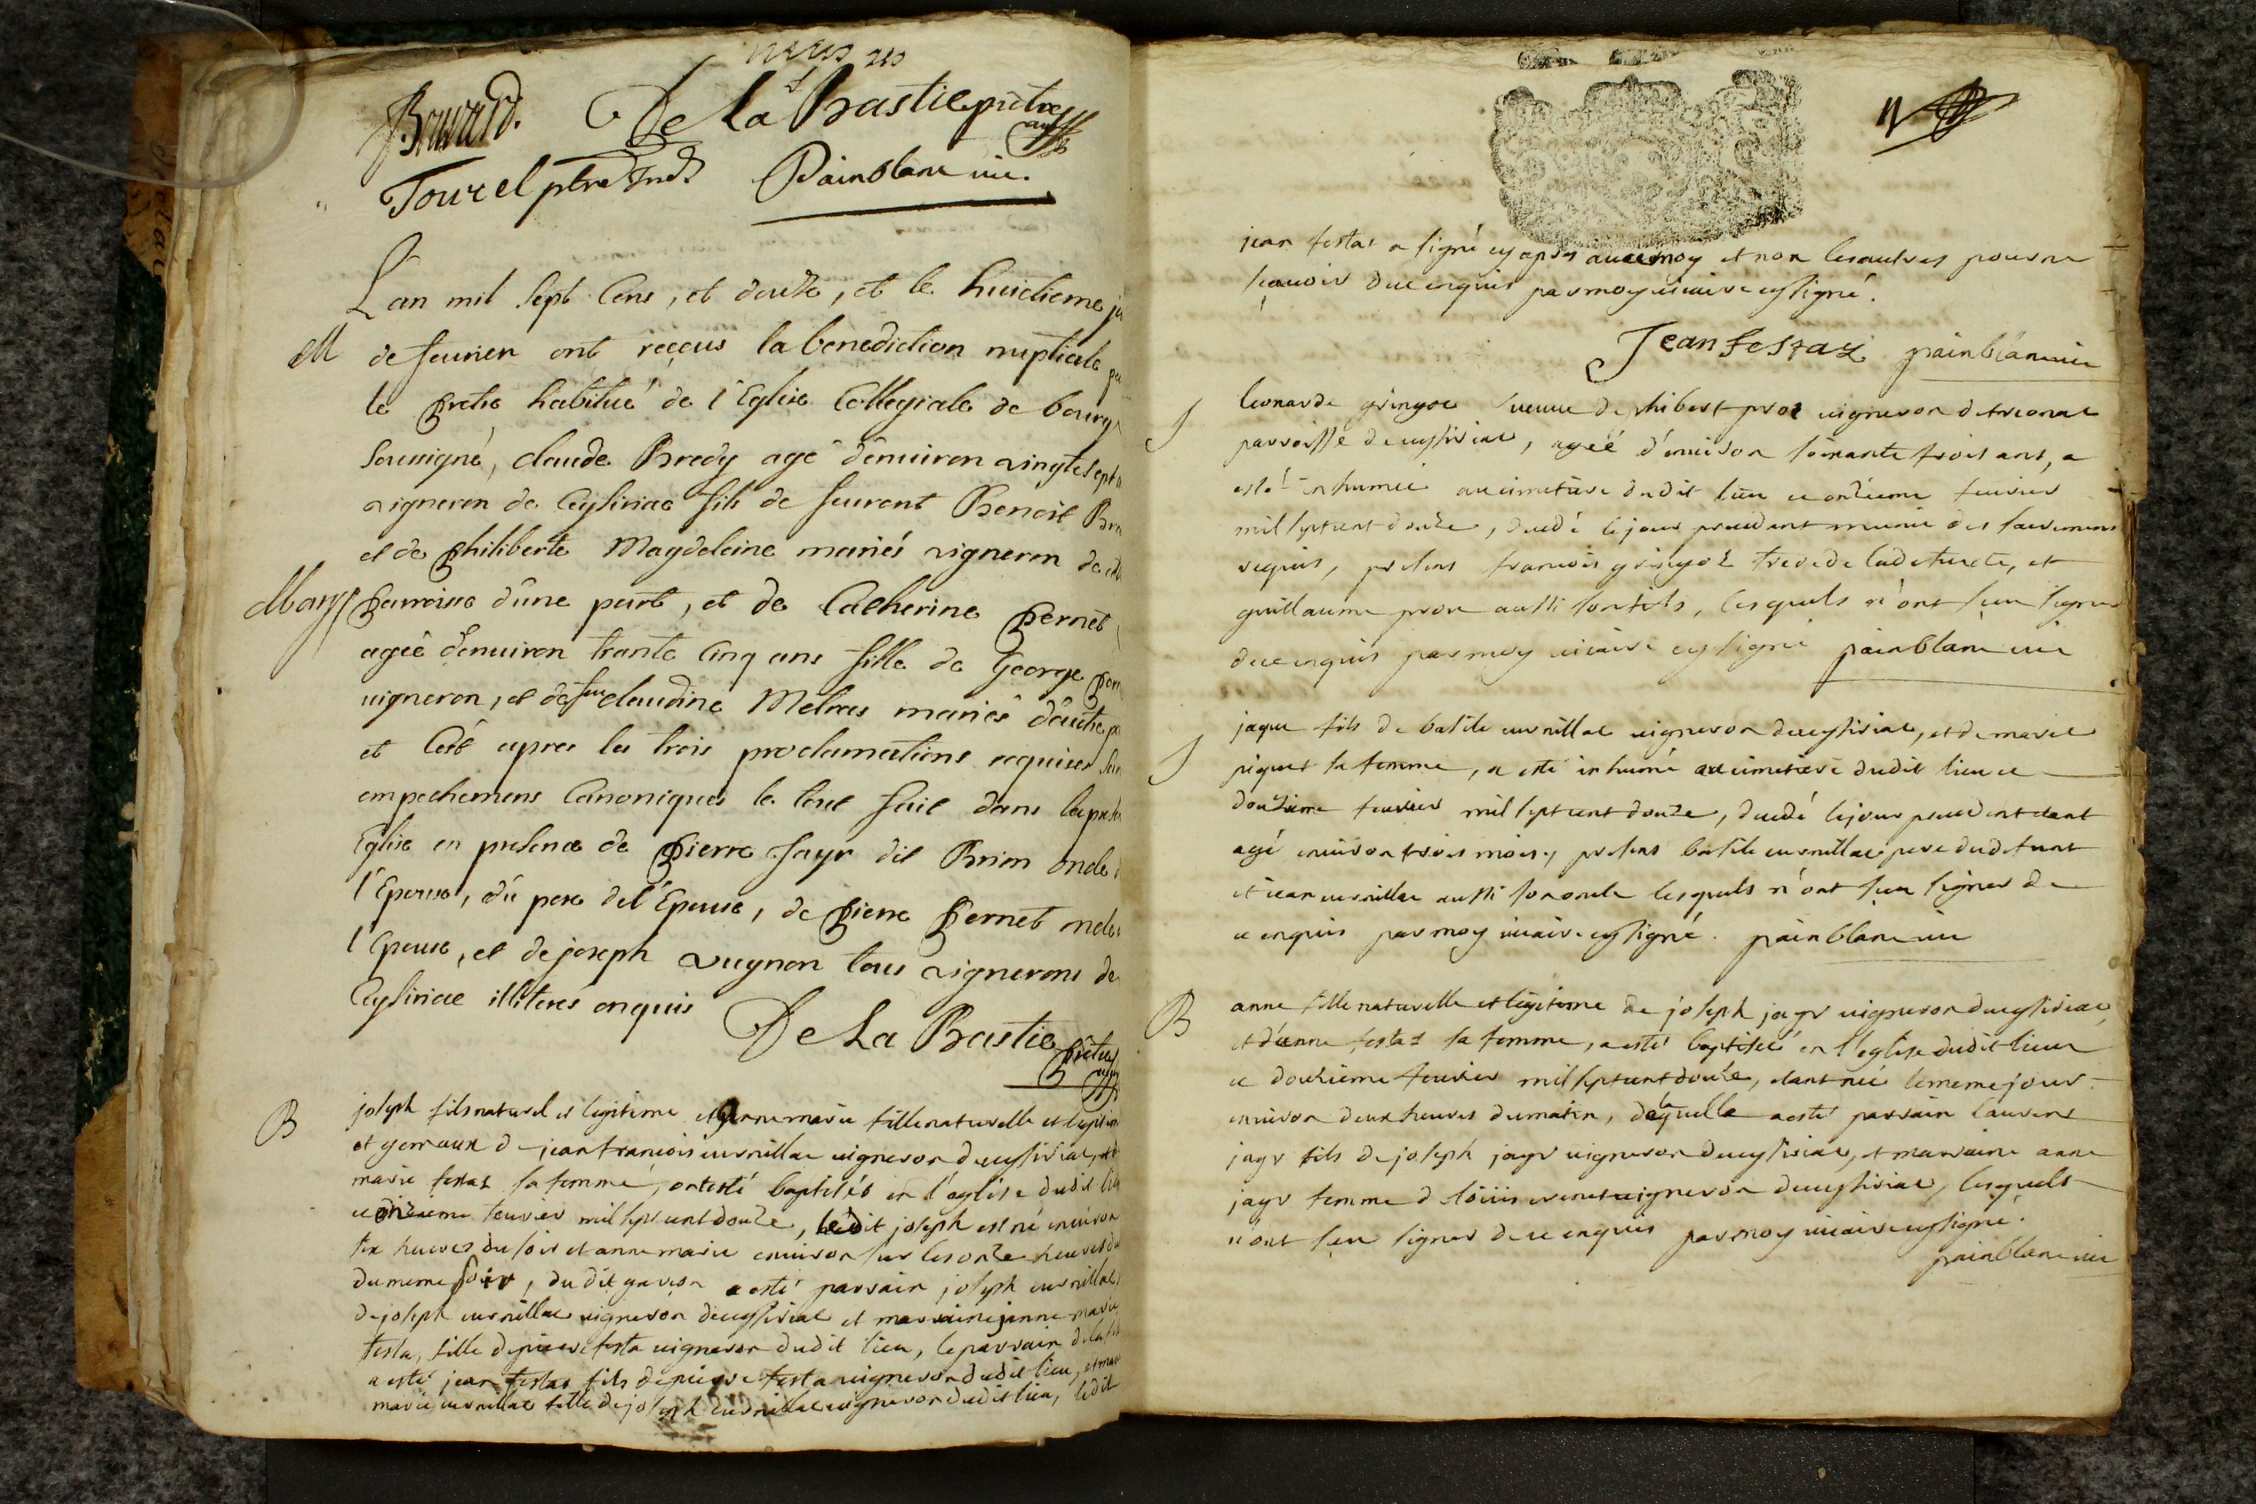 Bouvard. De La Bastie prêtre
Tourel ptre Ind. Painblanc vic.
L'an mil sept cens, et douze, et le huictieme
M de fevrier ont reçeus la benediction nuptiale
le Pretre habitué de l'Eglise Collegiale de bourg
soussigné, claude Bredy agé d'environ vingt sept
vigneron de Ceyseriac fils de feu Benoit
et de Philiberte Magdeleine mariés vigneron de
parroisse d'une part, et de Catherine Pernet
agée d'environ trante cinq ans fille de George
vigneron, et de feu claudine Melras mariés d'autre
et C'est apres les trois proclamations requises
empechemens Canoniques le tout fait dans
Eglise en presence de Pierre Jayr dit Brim oncle
l'Epouse, du pere de l'Epouse, de Pierre Pernet oncle
l'Epouse, et de joseph vugnon tous vignerons de
Ceyseriac illiterés enquis
De La Bastie Prêtre
B joseph fils naturel et legitime et anne marie fille naturelle et
et gemeaux de jean francois curnillac vigneron de ceyseriac, et
marie festaz sa femme, ont esté baptisés en l'eglise dudit
ce onzieme fevrier mil sept cent douze, ledit joseph est né environ
six heures du soir et anne marie environ sur les onze heures
du meme soir, dudit garcon a esté parrain joseph curnillac
de joseph curnillac vigneron de ceyseriac et marraine janne marie
festa, fille de pierre festa vigneron dudit lieu, le parrain de la
a esté jean festaz fils de pierre festa vigneron dudit lieu, et
marie curnillac fille de joseph curnillac vigneron dudit lieu, ledit
jean festaz a signé cy apres avec moy et non les autres pour ne
sçavoir de ce enquis par moy vicaire cy signé.
Jean festaz painblanc vic
leonarde gringoz veuve de philibert proz vigneron de
parroisse de ceyseriac, agéé d'environ soixante trois ans, a
esté inhumée au cimetiere dudit lieu ce onzieme fevrier
mil sept cent douze, decedé le jour precedant munie des sacremens
requis, presens francois gringoz frere de la defuncte, et
guillaume proz aussi son fils, lesquels n'ont sceu signer
de ce enquis par moy vicaire cy signé painblanc vic
jaque fils de basile curnillac vigneron de ceyseriac, et de marie
piquet sa femme, a esté inhumé au cimetiere dudit lieu ce
douzieme fevrier mil sept cent douze, decedé le jour precedent etant
agé environ trois mois, presens basile curnillac pere du defunt
et jean curnillac aussi son oncle lesquels n'ont sceu signer de
ce enquis par moy vicaire cy signé. painblanc vic
B anne fille naturelle et legitime de joseph jayr vigneron de ceyseriac,
et d'anne festaz sa femme, a esté baptisée en l'eglise dudit lieu
ce douzieme fevrier mil sept cent douze, etant née le meme jour
environ deux heures du matin, de laquelle a esté parrain laurent
jayr fils de joseph jayr vigneron de ceyseriac, et marraine anne
jayr femme de loüis vigneron de ceyseriac, lesquels
n'ont sceu signer de ce enquis par moy vicaire cy signé.
painblanc vic